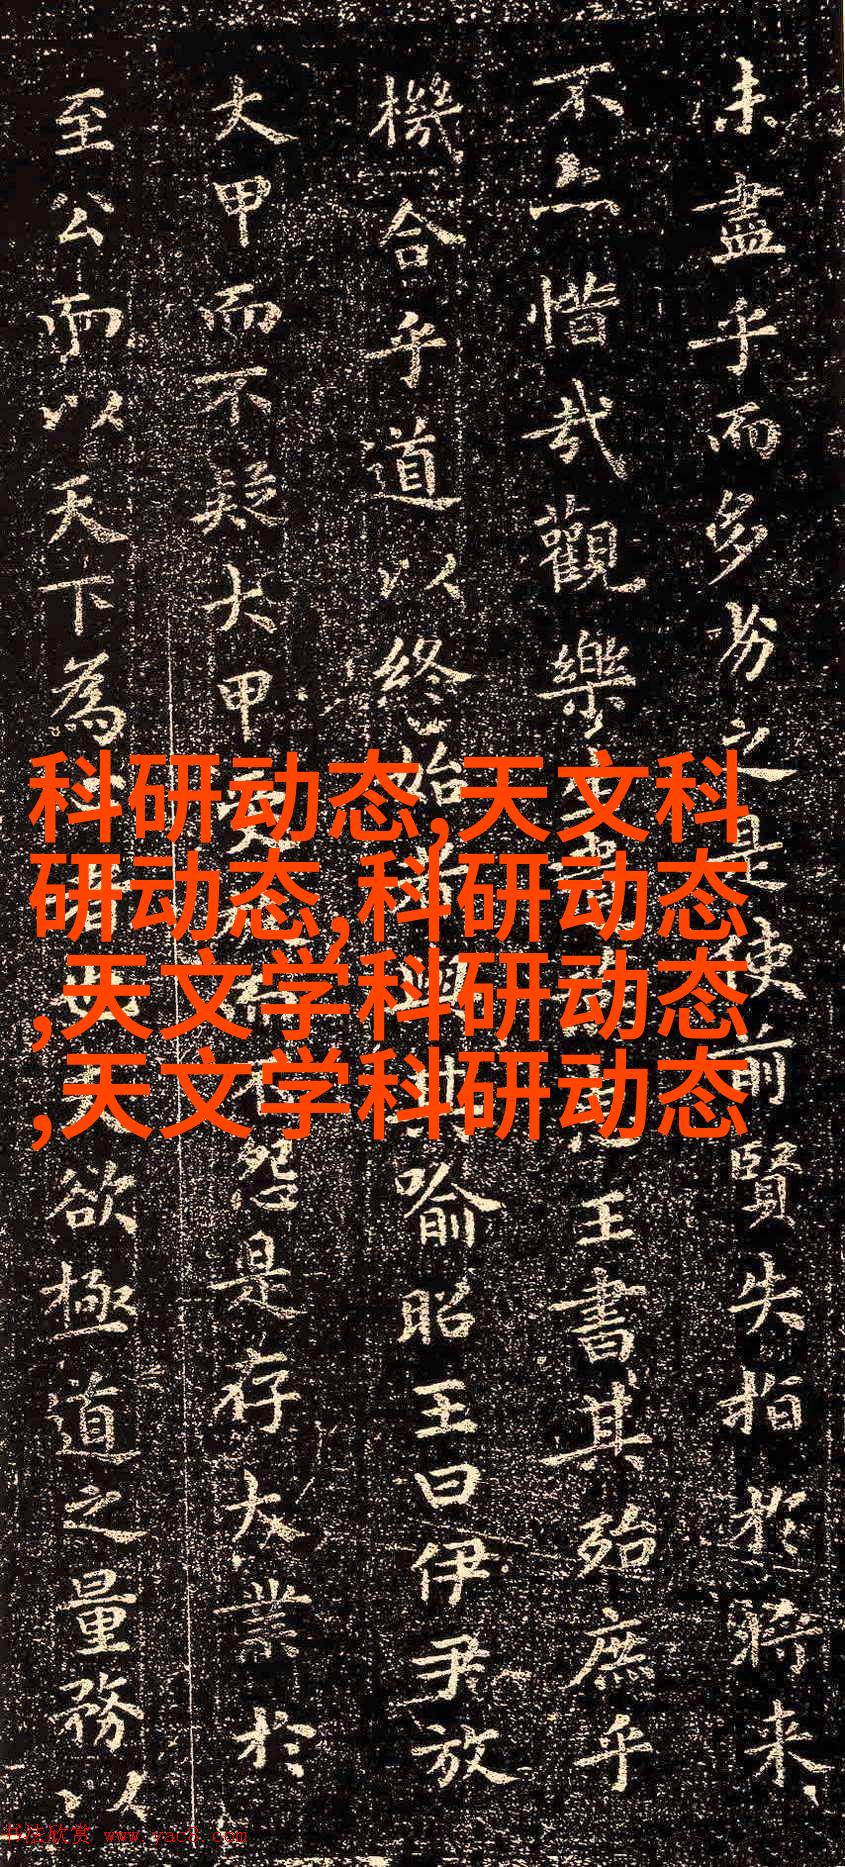 未盡乎而多劣之是使前賢失指於將来
不亦惜哉觀樂王書其殆庶乎
機合乎道以終始喻昭王曰伊尹放
大甲而不疑大甲怨是存大業於
至公而以天下為欲極道之量務以
科研动态,天文科
研动态,科研动态
,天文学科研动态
,天文学科研动态
书法欣赏 www.yac8.com